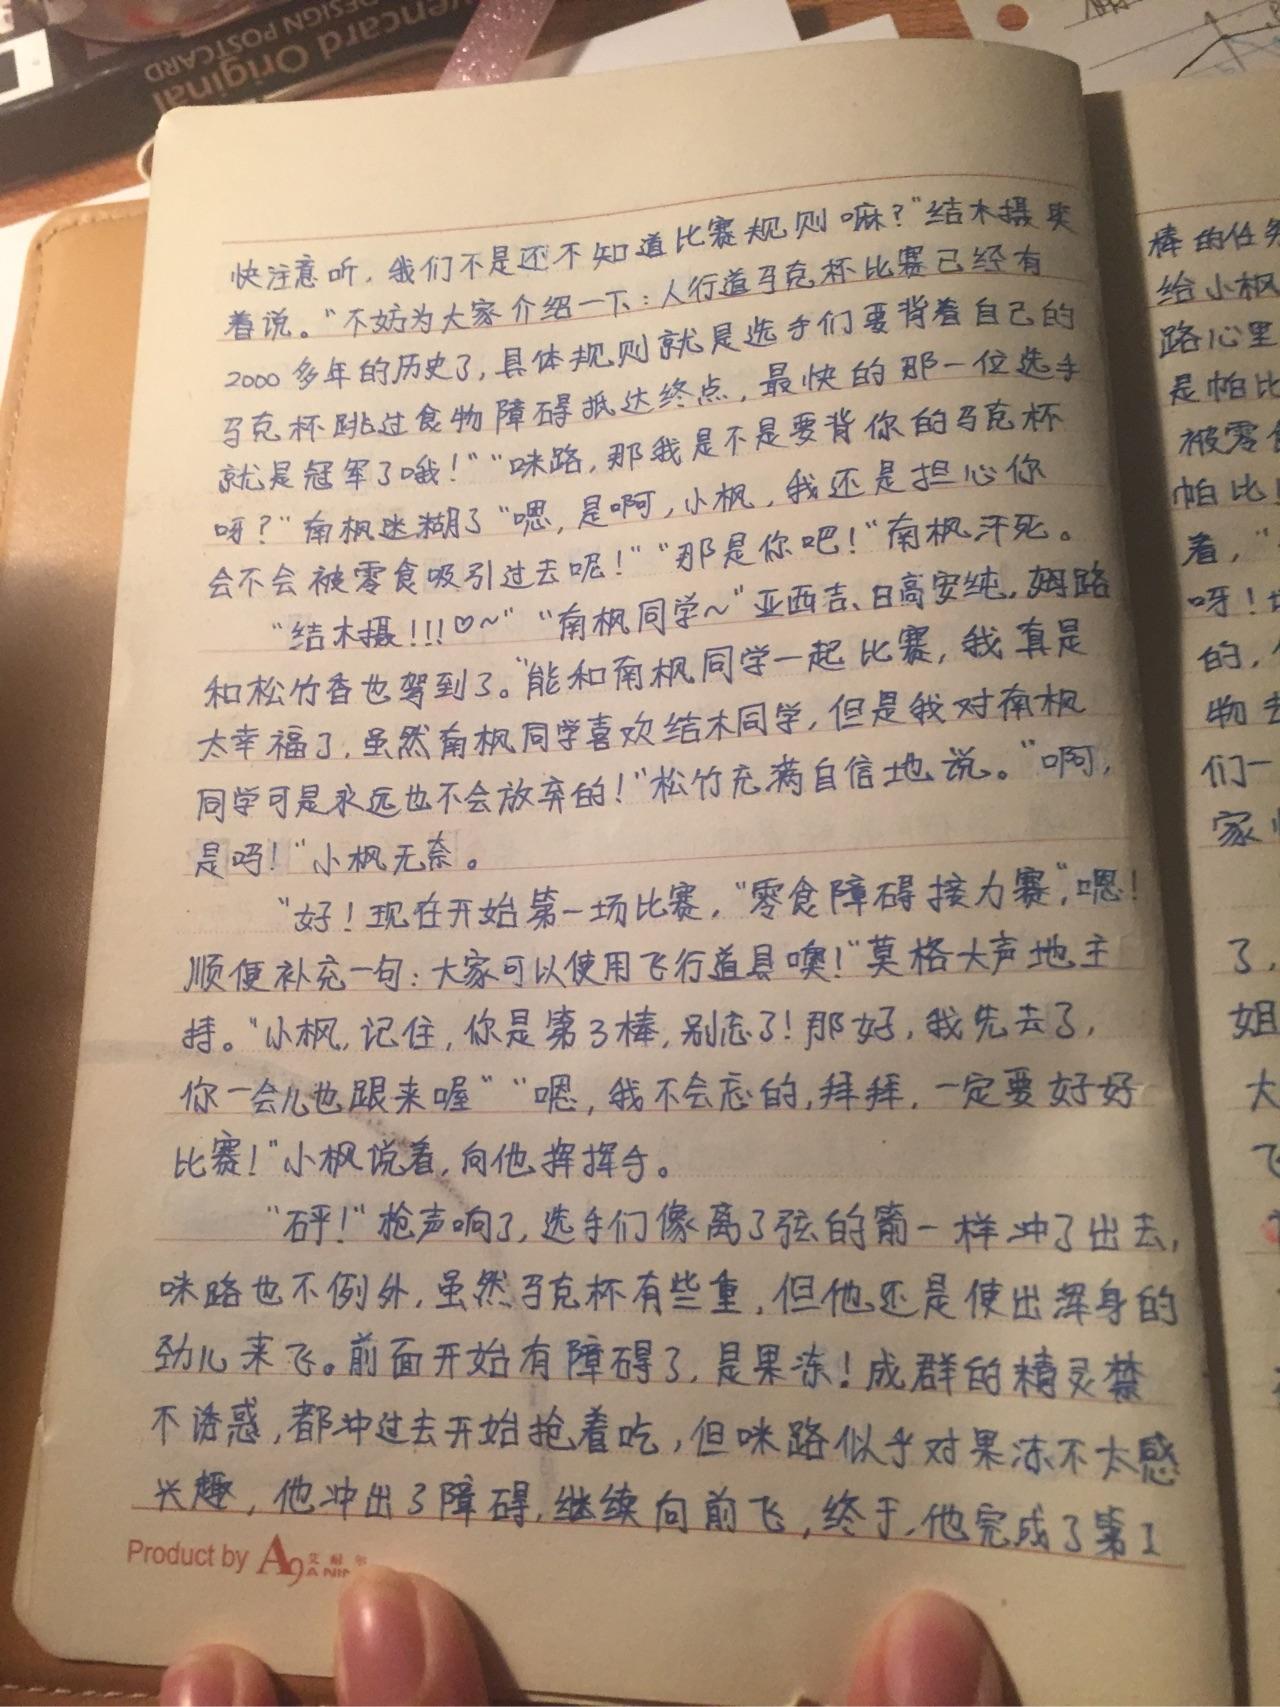 Original
DESIGN POSTCARD
快注意听，我们不是还不知道比赛规则嘛？"结木摄笑
着说。"不妨为大家介绍一下：人行道马克杯比赛已经有
2000多年的历史了，具体规则就是选手们要背着自己的
马克杯跳过食物障碍抵达终点，最快的那一位选手
就是冠军了哦！""咪路，那我是不是要背你的马克杯
呀？"南枫迷糊了"嗯，是啊，小枫，我还是担心你
会不会被零食吸引过去呢！""那是你吧！"南枫汗死。
"结木摄！！！♡~""南枫同学~"亚西吉、日高安纯，姆路
和松竹香也驾到了。"能和南枫同学一起比赛，我真是
太幸福了，虽然南枫同学喜欢结木同学，但是我对南枫
同学可是永远也不会放弃的！"松竹充满自信地说。"啊，
是吗！"小枫无奈。
"好！现在开始第一场比赛，"零食障碍接力赛"，嗯！
顺便补充一句：大家可以使用飞行道具噢！"莫格大声地主
持。"小枫，记住，你是第3棒，别忘了！那好，我先去了，
你一会儿也跟来喔""嗯，我不会忘的，拜拜，一定要好好
比赛！"小枫说着，向他挥挥手。
"砰！"枪声响了，选手们像离了弦的箭一样冲了出去，
咪路也不例外，虽然马克杯有些重，但他还是使出浑身的
劲儿来飞。前面开始有障碍了，是果冻！成群的精灵禁
不诱惑，都冲过去开始抢着吃，但咪路似乎对果冻不太感
兴趣，他冲出了障碍，继续向前飞，终于，他完成了第1
Product by A9 艾耐尔
棒的任务
给小枫
路心里
是帕比
被零食
帕比
着，"
呀！
的，
物去
们一
家
了，
姐
大
飞